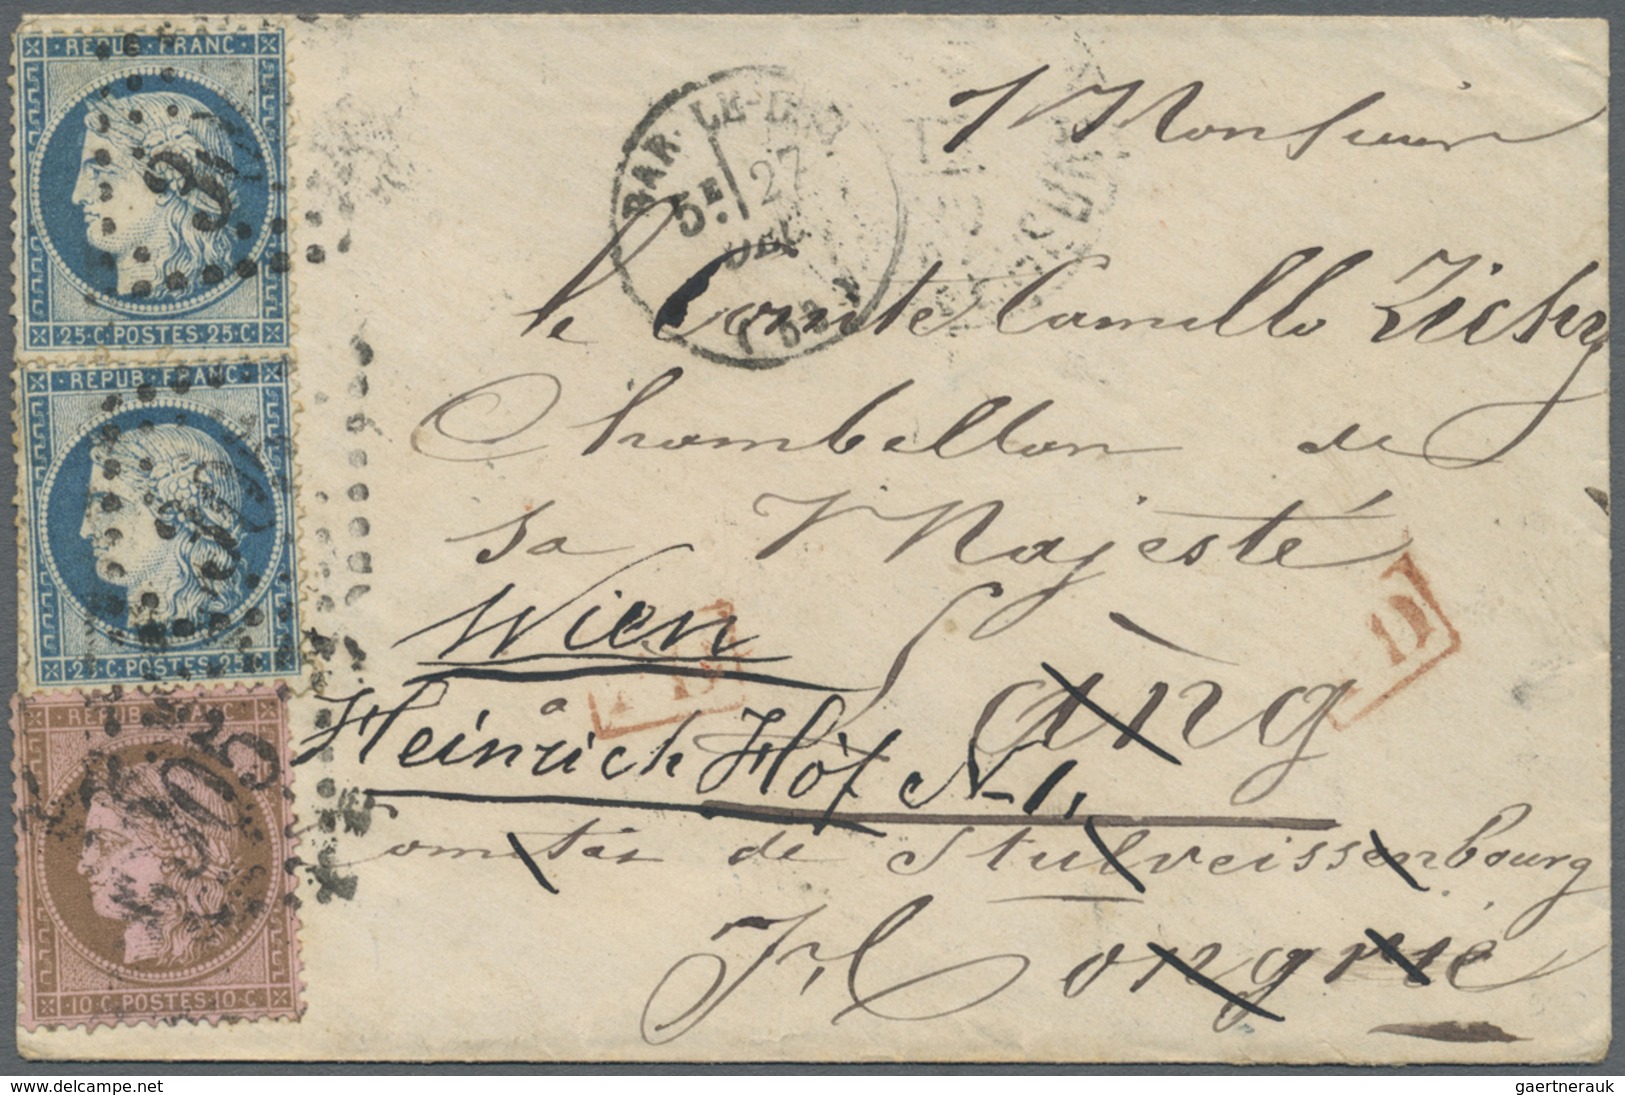 REPUB · FRANC
25 · C · POSTES · 25 · C
REPUB · FRANC
25 · C · POSTES · 25 · C
REPUB · FRANC
10 · C · POSTES · 10 · C
BAR-LE-DUC
5E 27
DEC
Monsieur
le Comte Camillo Zichy
Chambellan de
sa Majesté
Wien
Láng
Heinrich Hof N-1,
Comitás de Stulveissenbourg
Hongrie
PD
PD
gaertnerauk@delcampe.net